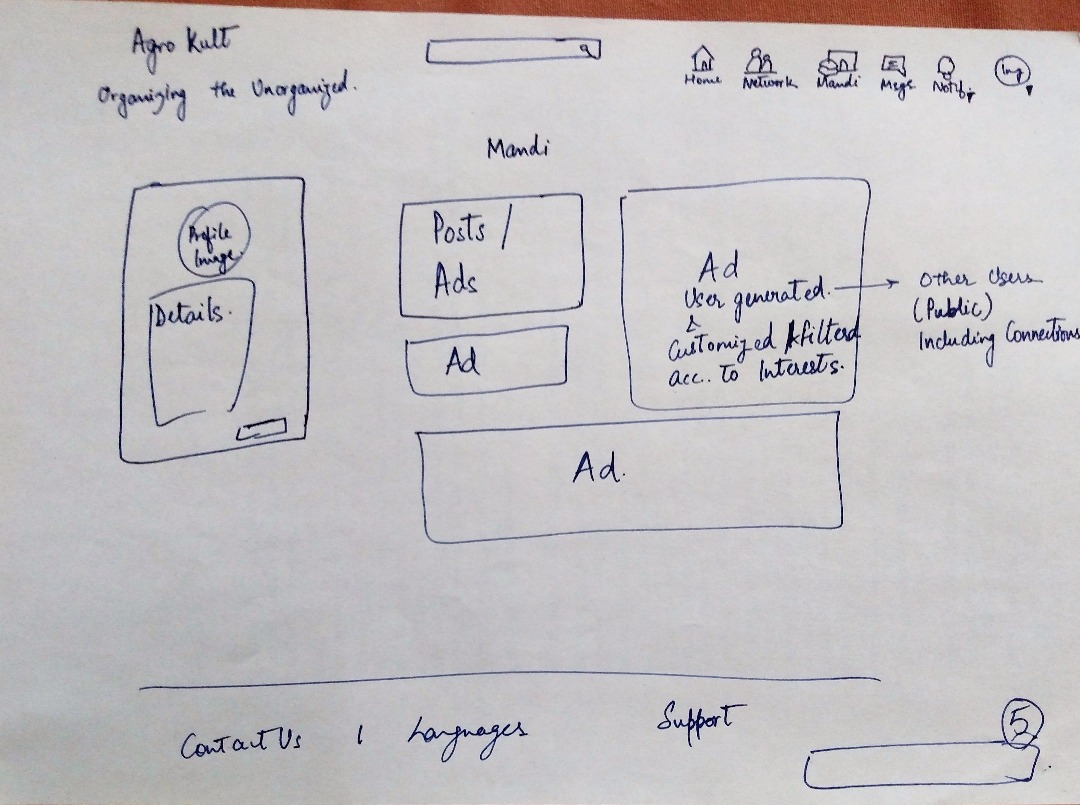 Agro Kult
Organizing the Unorganized.
Home
Network
Mandi
Msgs
Notif.
Img
Mandi
Profile
Image.
Details.
Posts /
Ads
Ad
Ad
User generated.
&
Customized & filterd
acc.. To Interests.
Other Users
(Public)
Including Connections
Ad.
Contact Us | Languages
Support
5